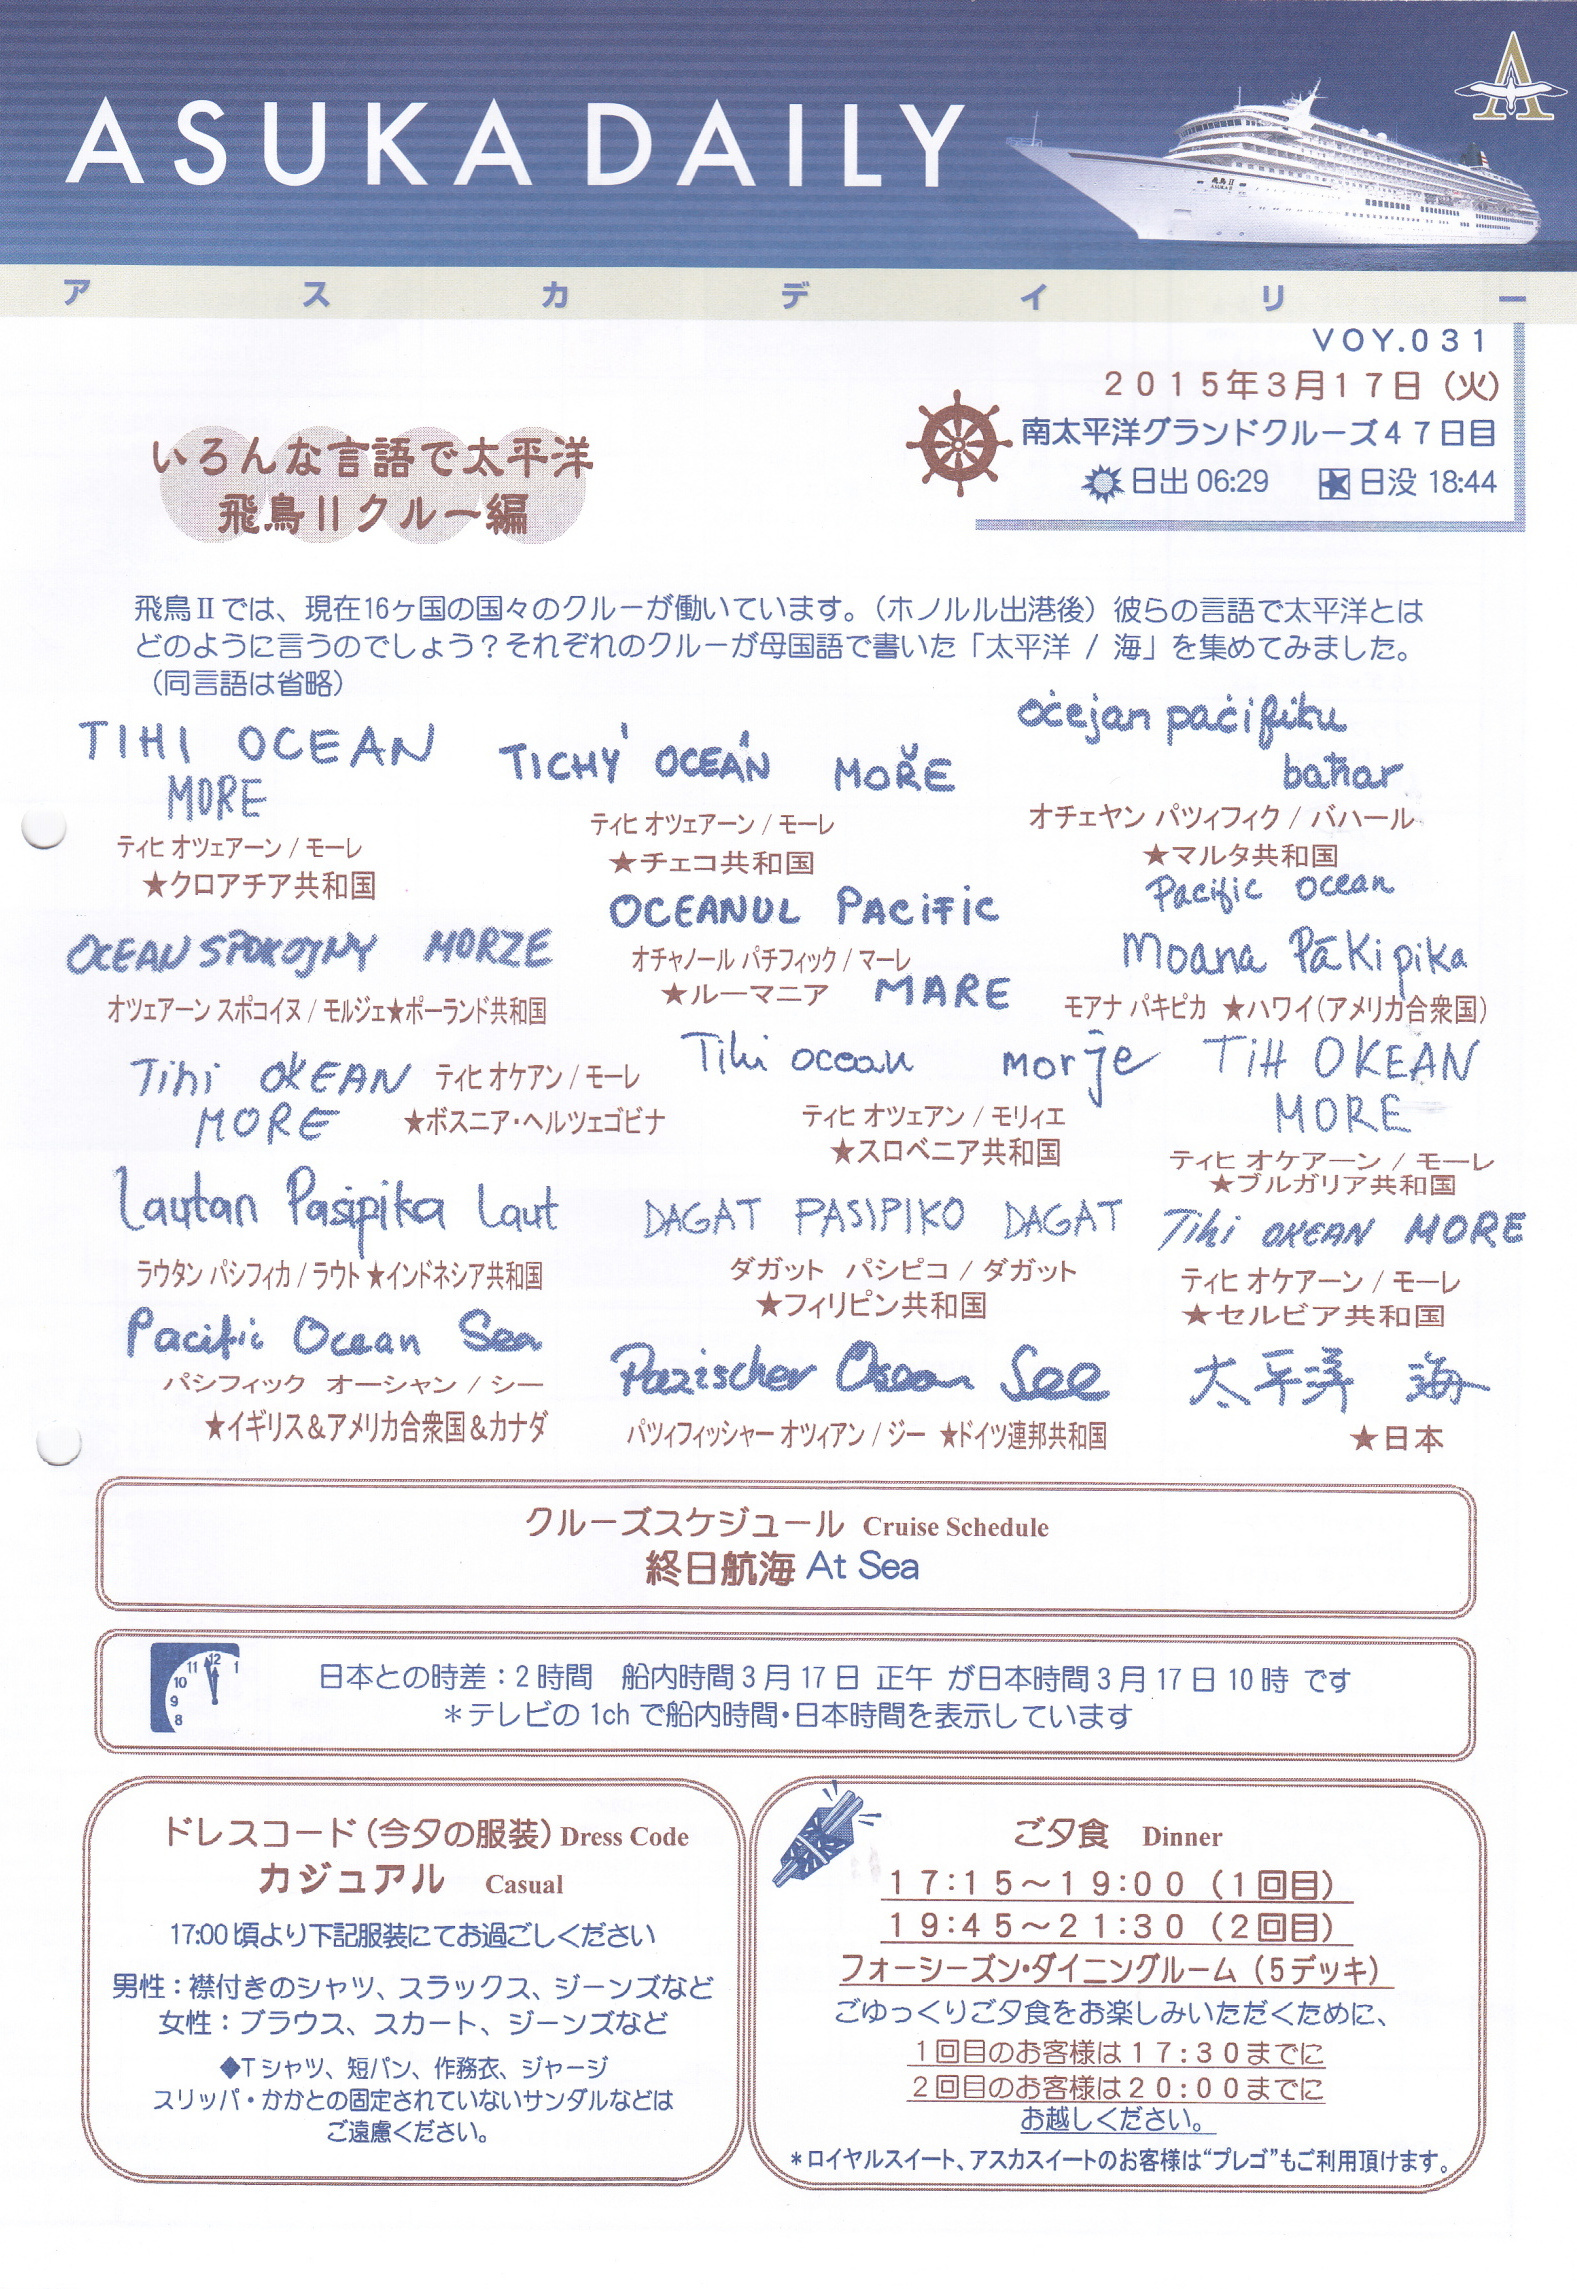 ASUKA DAILY
アスカデイリー
VOY.031
2015年3月17日（火）
南太平洋グランドクルーズ47日目
日出 06:29 日没 18:44
いろんな言語で太平洋
飛鳥Ⅱクルー編
飛鳥Ⅱでは、現在16ヶ国の国々のクルーが働いています。（ホノルル出港後）彼らの言語で太平洋とは
どのように言うのでしょう？それぞれのクルーが母国語で書いた「太平洋 / 海」を集めてみました。
（同言語は省略）
TIHI OCEAN
MORE
ティヒ オツェアーン / モーレ
★クロアチア共和国
TICHÝ OCEÁN MOŘE
ティヒ オツェアーン / モーレ
★チェコ共和国
oċejan paċifiku
baħar
オチェヤン パツィフィク / バハール
★マルタ共和国
OCEAN SPOKOJNY MORZE
オツェアーン スポコイヌ / モルジェ★ポーランド共和国
OCEANUL PACIFIC
オチャノール パチフィック / マーレ
★ルーマニア MARE
Pacific ocean
Moana Pākipika
モアナ パキピカ ★ハワイ（アメリカ合衆国）
Tihi OKEAN
MORE
ティヒ オケアン / モーレ
★ボスニア・ヘルツェゴビナ
Tihi ocean morje
ティヒ オツェアン / モリィエ
★スロベニア共和国
TiH OKEAN
MORE
ティヒ オケアーン / モーレ
★ブルガリア共和国
Lautan Pasipika Laut
ラウタン パシフィカ / ラウト ★インドネシア共和国
DAGAT PASIPIKO DAGAT
ダガット パシピコ / ダガット
★フィリピン共和国
Tihi OKEAN MORE
ティヒ オケアーン / モーレ
★セルビア共和国
Pacific Ocean Sea
パシフィック オーシャン / シー
★イギリス＆アメリカ合衆国＆カナダ
Pazischer Ocean See
パツィフィッシャー オツィアン / ジー ★ドイツ連邦共和国
太平洋 海
★日本
クルーズスケジュール Cruise Schedule
終日航海 At Sea
11 12 1
10
9
8
日本との時差：2時間 船内時間3月17日 正午 が日本時間3月17日10時 です
＊テレビの 1ch で船内時間・日本時間を表示しています
ドレスコード（今夕の服装）Dress Code
カジュアル Casual
17:00 頃より下記服装にてお過ごしください
男性：襟付きのシャツ、スラックス、ジーンズなど
女性：ブラウス、スカート、ジーンズなど
◆Tシャツ、短パン、作務衣、ジャージ
スリッパ・かかとの固定されていないサンダルなどは
ご遠慮ください。
ご夕食 Dinner
17:15～19:00（1回目）
19:45～21:30（2回目）
フォーシーズン・ダイニングルーム（5デッキ）
ごゆっくりご夕食をお楽しみいただくために、
1回目のお客様は17:30までに
2回目のお客様は20:00までに
お越しください。
＊ロイヤルスイート、アスカスイートのお客様は“プレゴ”もご利用頂けます。